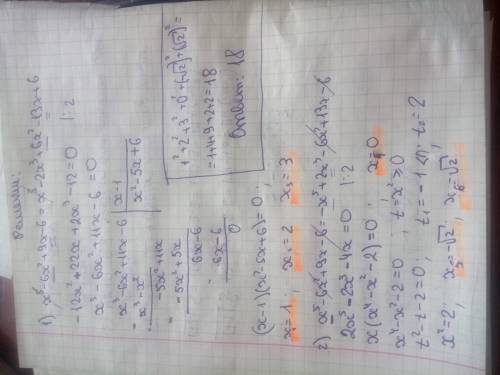 Решения:
1) x⁵-6x²+9x-6 = x⁵-2x³+6x²-13x+6
-12x²+22x+2x³-12=0 |:2
x³-6x²+11x-6=0
x³-6x²+11x-6 | x-1
x³-x² | x²-5x+6
-5x²+11x
-5x²+5x
6x-6
6x-6
0
(x-1)(x²-5x+6)=0;
x₁=1 x₂=2 x₃=3
2) x⁵-6x²+9x-6=-x⁵+2x³-6x²+13x-6
2x⁵-2x³-4x=0 |:2
x(x⁴-x²-2)=0; x₄=0
x⁴-x²-2=0; t=x²≥0
t²-t-2=0; t₁=-1 t₂=2
x²=2; x₅=-√2; x₆=√2;
1²+2²+3²+0²+(-√2)²+(√2)²=
=1+4+9+2+2=18
Ответ: 18